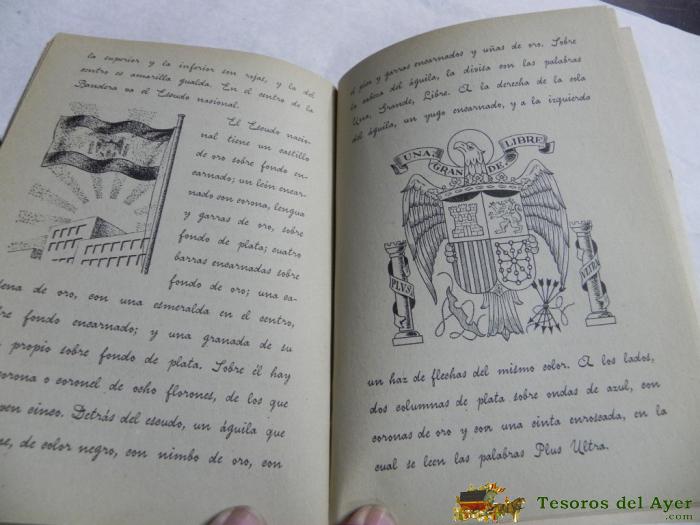 la superior y la inferior son rojas, y la del
centro es amarilla gualda. En el centro de la
Bandera va el Escudo nacional.
El Escudo nacio-
nal tiene un castillo
de oro sobre fondo en-
carnado; un león encar-
nado son corona, lengua
y garras de oro, sobre
fondo de plata; cuatro
barras encarnadas sobre
fondo de oro; una ca-
dena de oro, con una esmeralda en el centro,
fondo encarnado; y una granada de su
propio sobre fondo de plata. Sobre él hay
corona o coronel de ocho florones, de los que
cinco. Detrás del escudo, un águila que
de color negro, con nimbo de oro, con
el pico y garras encarnados y uñas de oro. Sobre
la cabeza del águila, la divisa con las palabras
Una, Grande, Libre. A la derecha de la cola
del águila, un yugo encarnado, y a la izquierda
UNA GRANDE LIBRE
PLVS VLTRA
un haz de flechas del mismo color. A los lados,
dos columnas de plata sobre ondas de azul, con
coronas de oro y con una cinta enroscada, en la
cual se leen las palabras Plus Ultra.
Tesoros del Ayer
.com